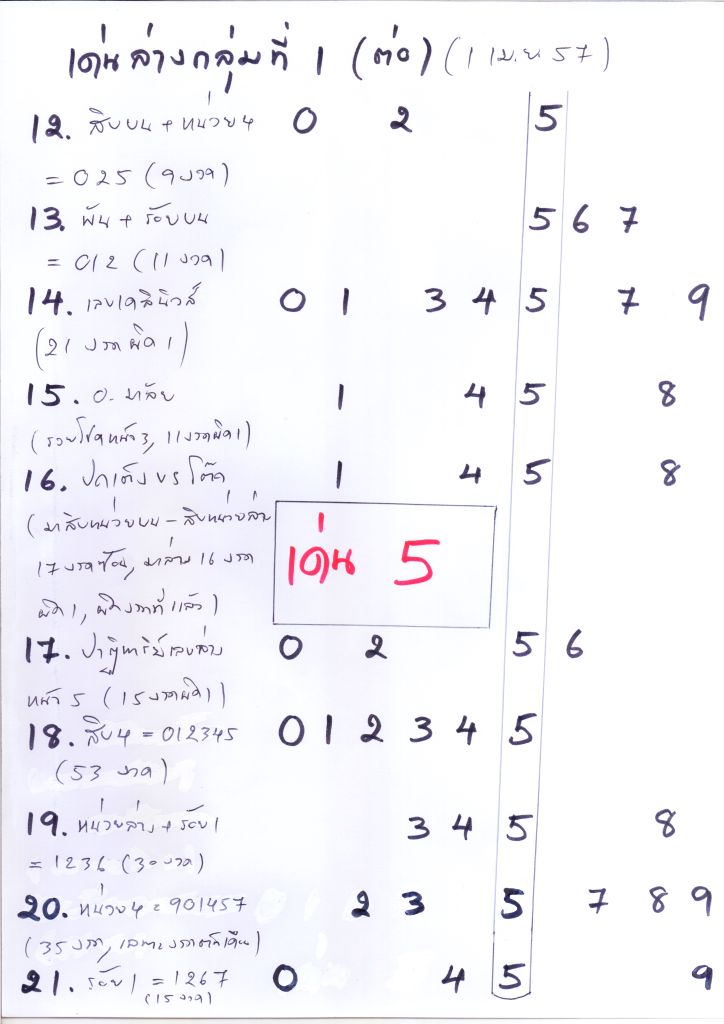 เด่นล่างกลุ่มที่ 1 (ต่อ) (1 เม.ย. 57)
12. สิบบน + หน่วย 4 0 2 5
= 025 (9 งวด)
13. พัน + ร้อยบน 5 6 7
= 012 (11 งวด)
14. เลขเดลินิวส์ 0 1 3 4 5 7 9
(21 งวดผิด 1)
15. อ. มาลัย 1 4 5 8
(รวยโชคหน้า 3, 11 งวดผิด 1)
16. ปักเต็ง บร โต๊ด 1 4 5 8
(มาสิบหน่วยบน - สิบหน่วยล่าง
17 งวดซ้อน, มาล่าง 16 งวด
เด่น 5
ผิด 1, ผิดงวดที่แล้ว)
17. ปาฏิหาริย์เลขล่าง 0 2 5 6
หน้า 5 (15 งวดผิด 1)
18. สิบ 4 = 012345 0 1 2 3 4 5
(53 งวด)
19. หน่วยล่าง + ร้อย 1 3 4 5 8
= 1236 (30 งวด)
20. หน่วย 4 = 901457 2 3 5 7 8 9
(35 งวด, เฉพาะงวดต้นเดือน)
21. ร้อย 1 = 1267 0 4 5 9
(15 งวด)